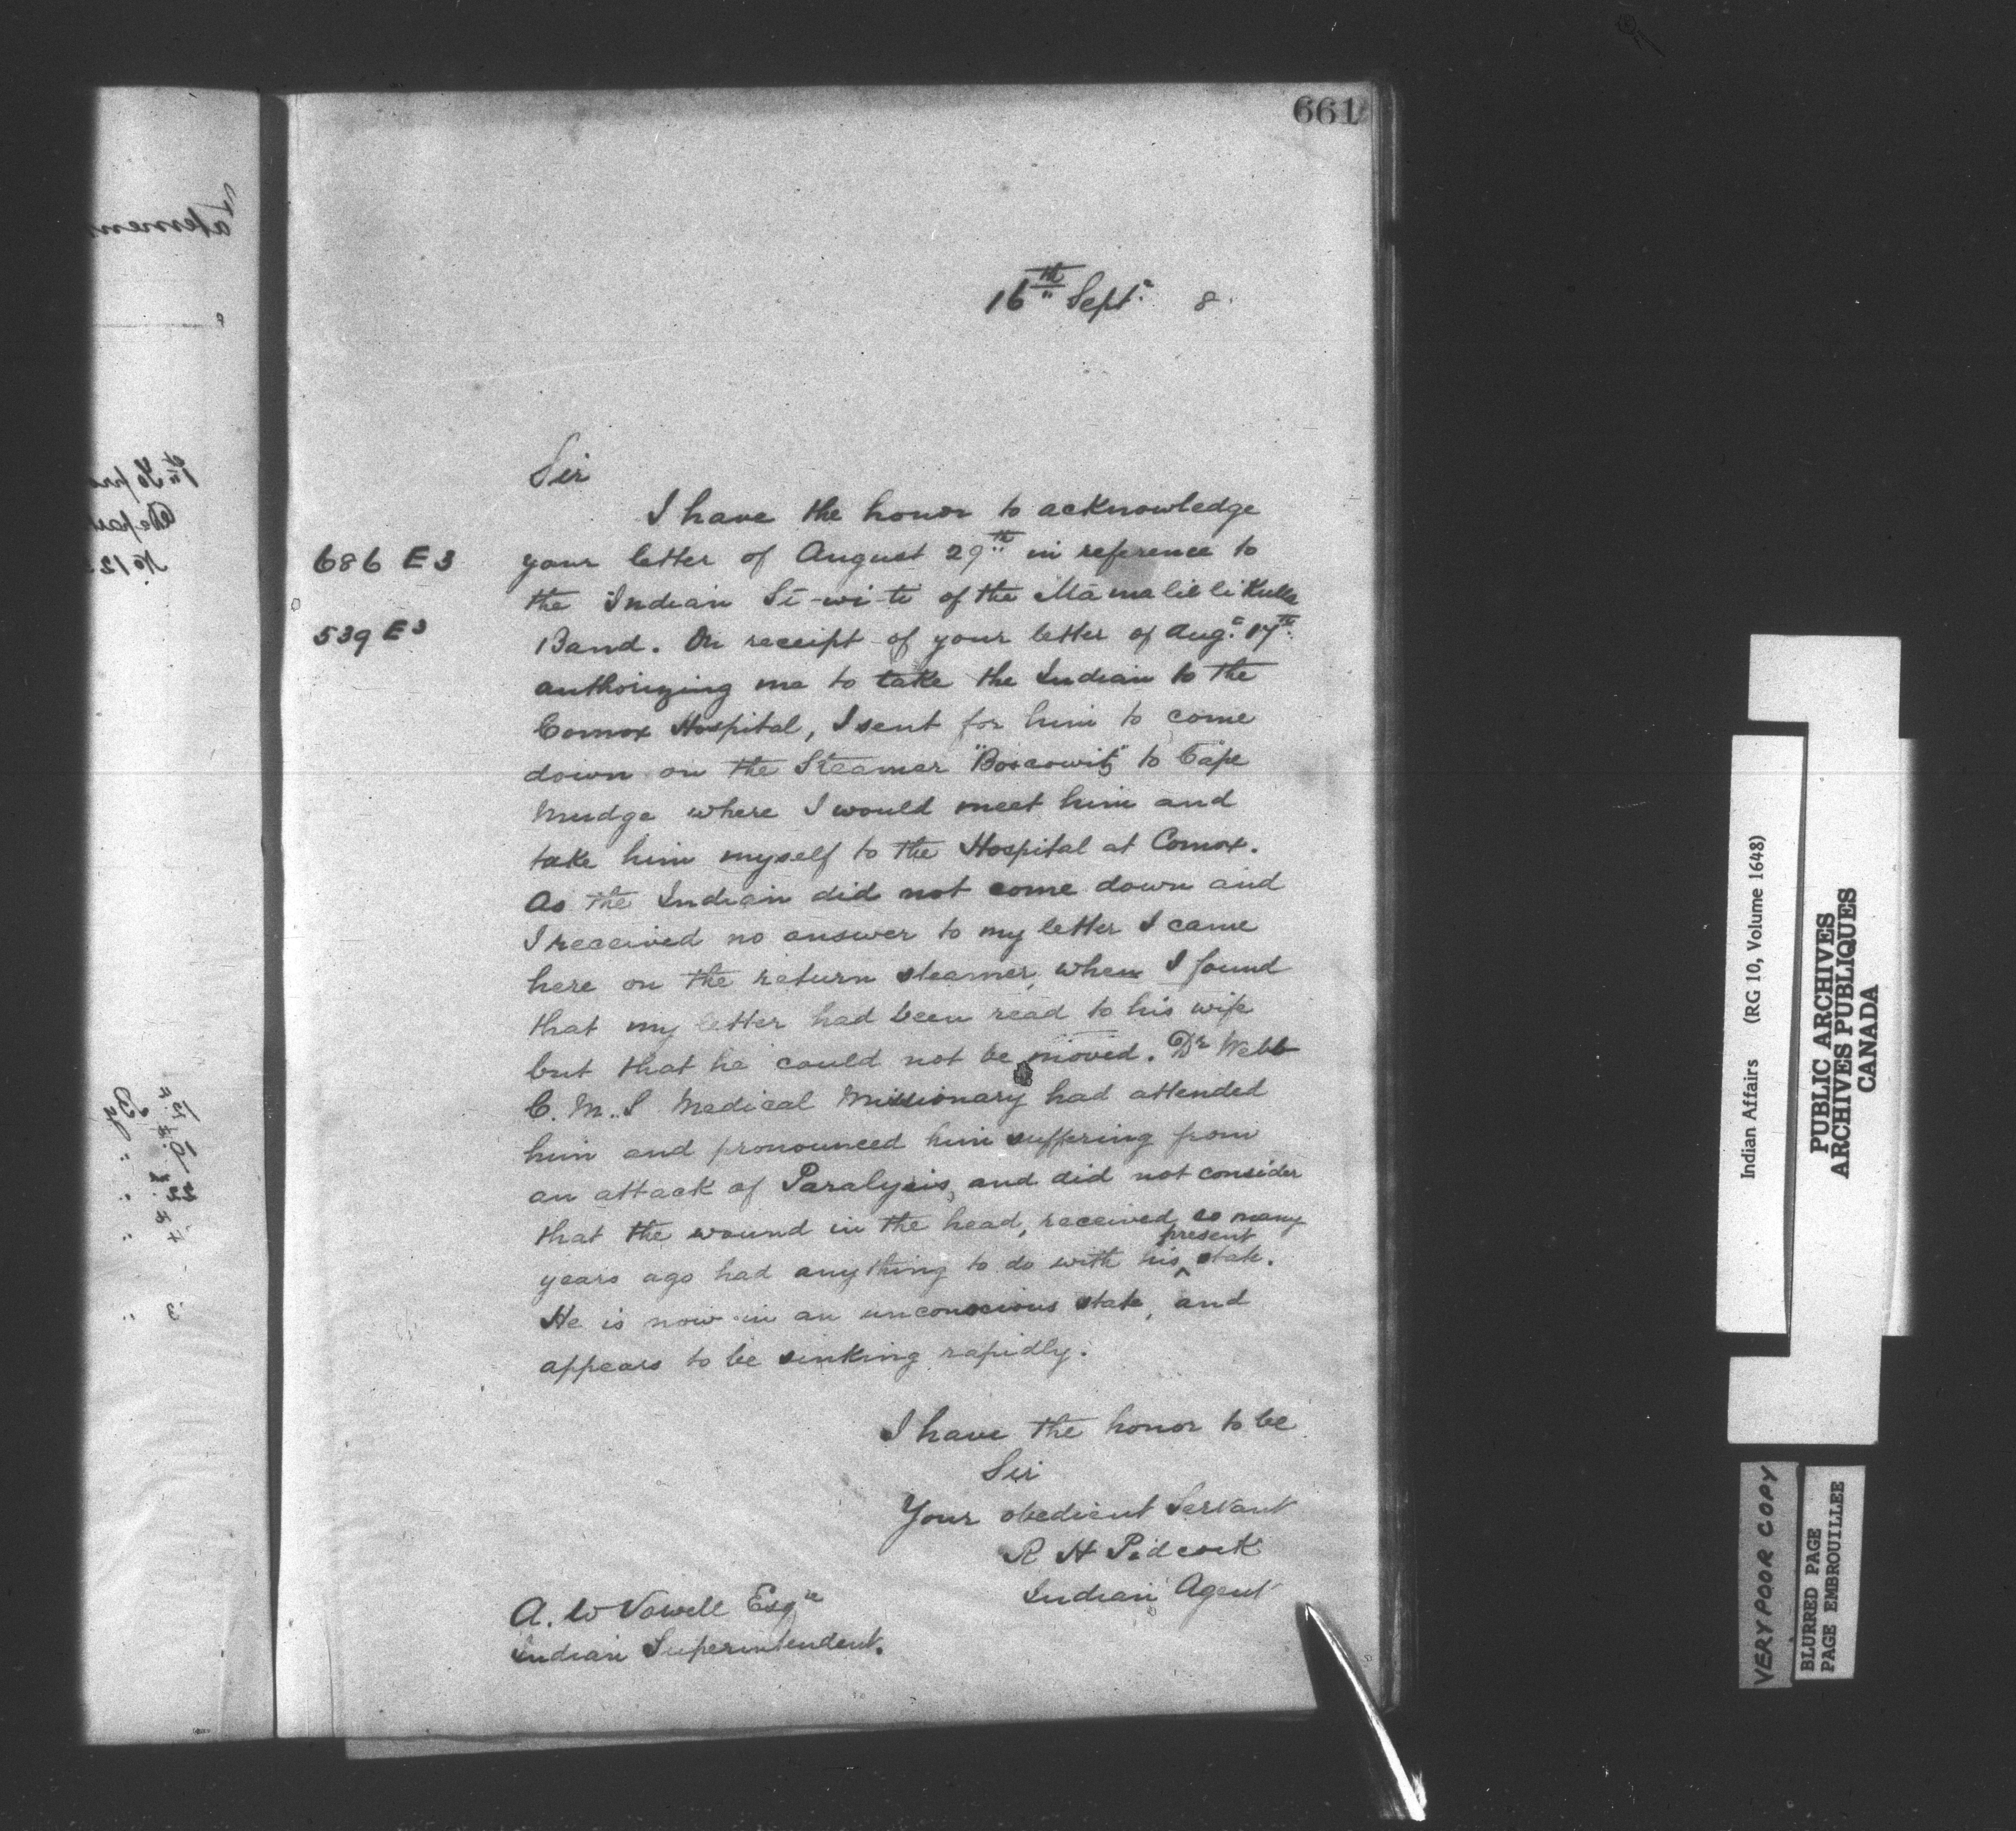 661
16th Sept. 8
Sir
I have the honor to acknowledge
686 E 3 your letter of August 29th in reference to
the Indian Si-wi-ti of the Mamalillikulla
539 E 3 Band. On receipt of your letter of Aug. 17th
authorizing me to take the Indian to the
Comox Hospital, I sent for him to come
down on the Steamer "Boscowitz" to Cape
Mudge where I would meet him and
take him myself to the Hospital at Comox.
As the Indian did not come down and
I received no answer to my letter I came
here on the return steamer, when I found
that my letter had been read to his wife
but that he could not be moved. Dr Webb
C. M. S Medical Missionary had attended
him and pronounced him suffering from
an attack of Paralysis, and did not consider
that the wound in the head, received so many
years ago had anything to do with his present state.
He is now in an unconscious state, and
appears to be sinking rapidly.
I have the honor to be
Sir
Your obedient Servant
R H Pidcock
Indian Agent
A. W Vowell Esqre
Indian Superintendent.
Indian Affairs (RG 10, Volume 1648)
PUBLIC ARCHIVES
ARCHIVES PUBLIQUES
CANADA
VERY POOR COPY
BLURRED PAGE
PAGE EMBROUILLEE